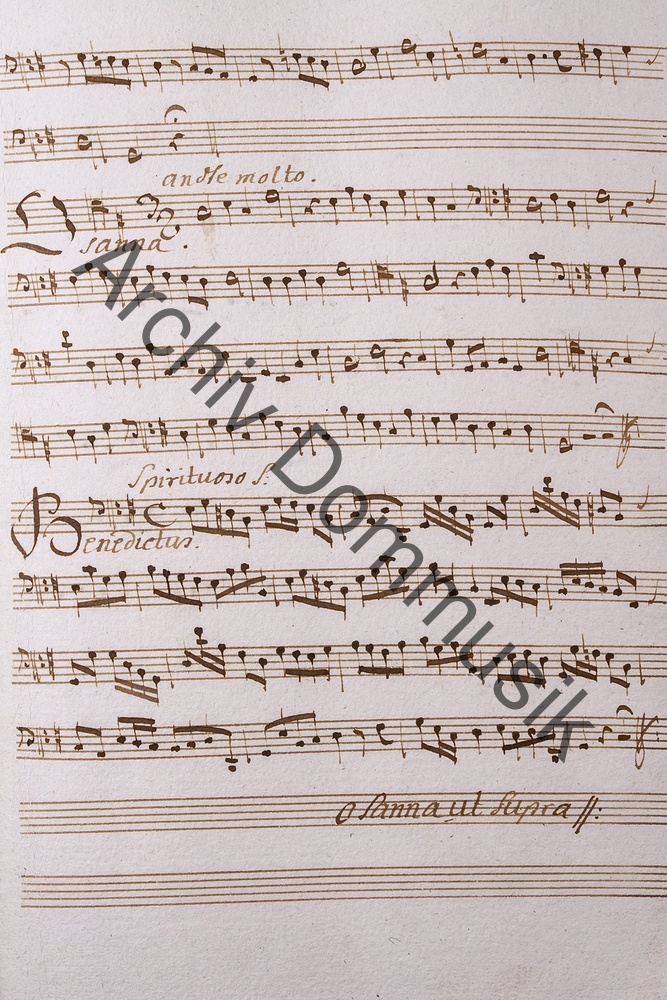 andte molto.
Osanna.
Spirituoso S:
Benedictus.
Osanna ut Supra
Archiv Dommusik